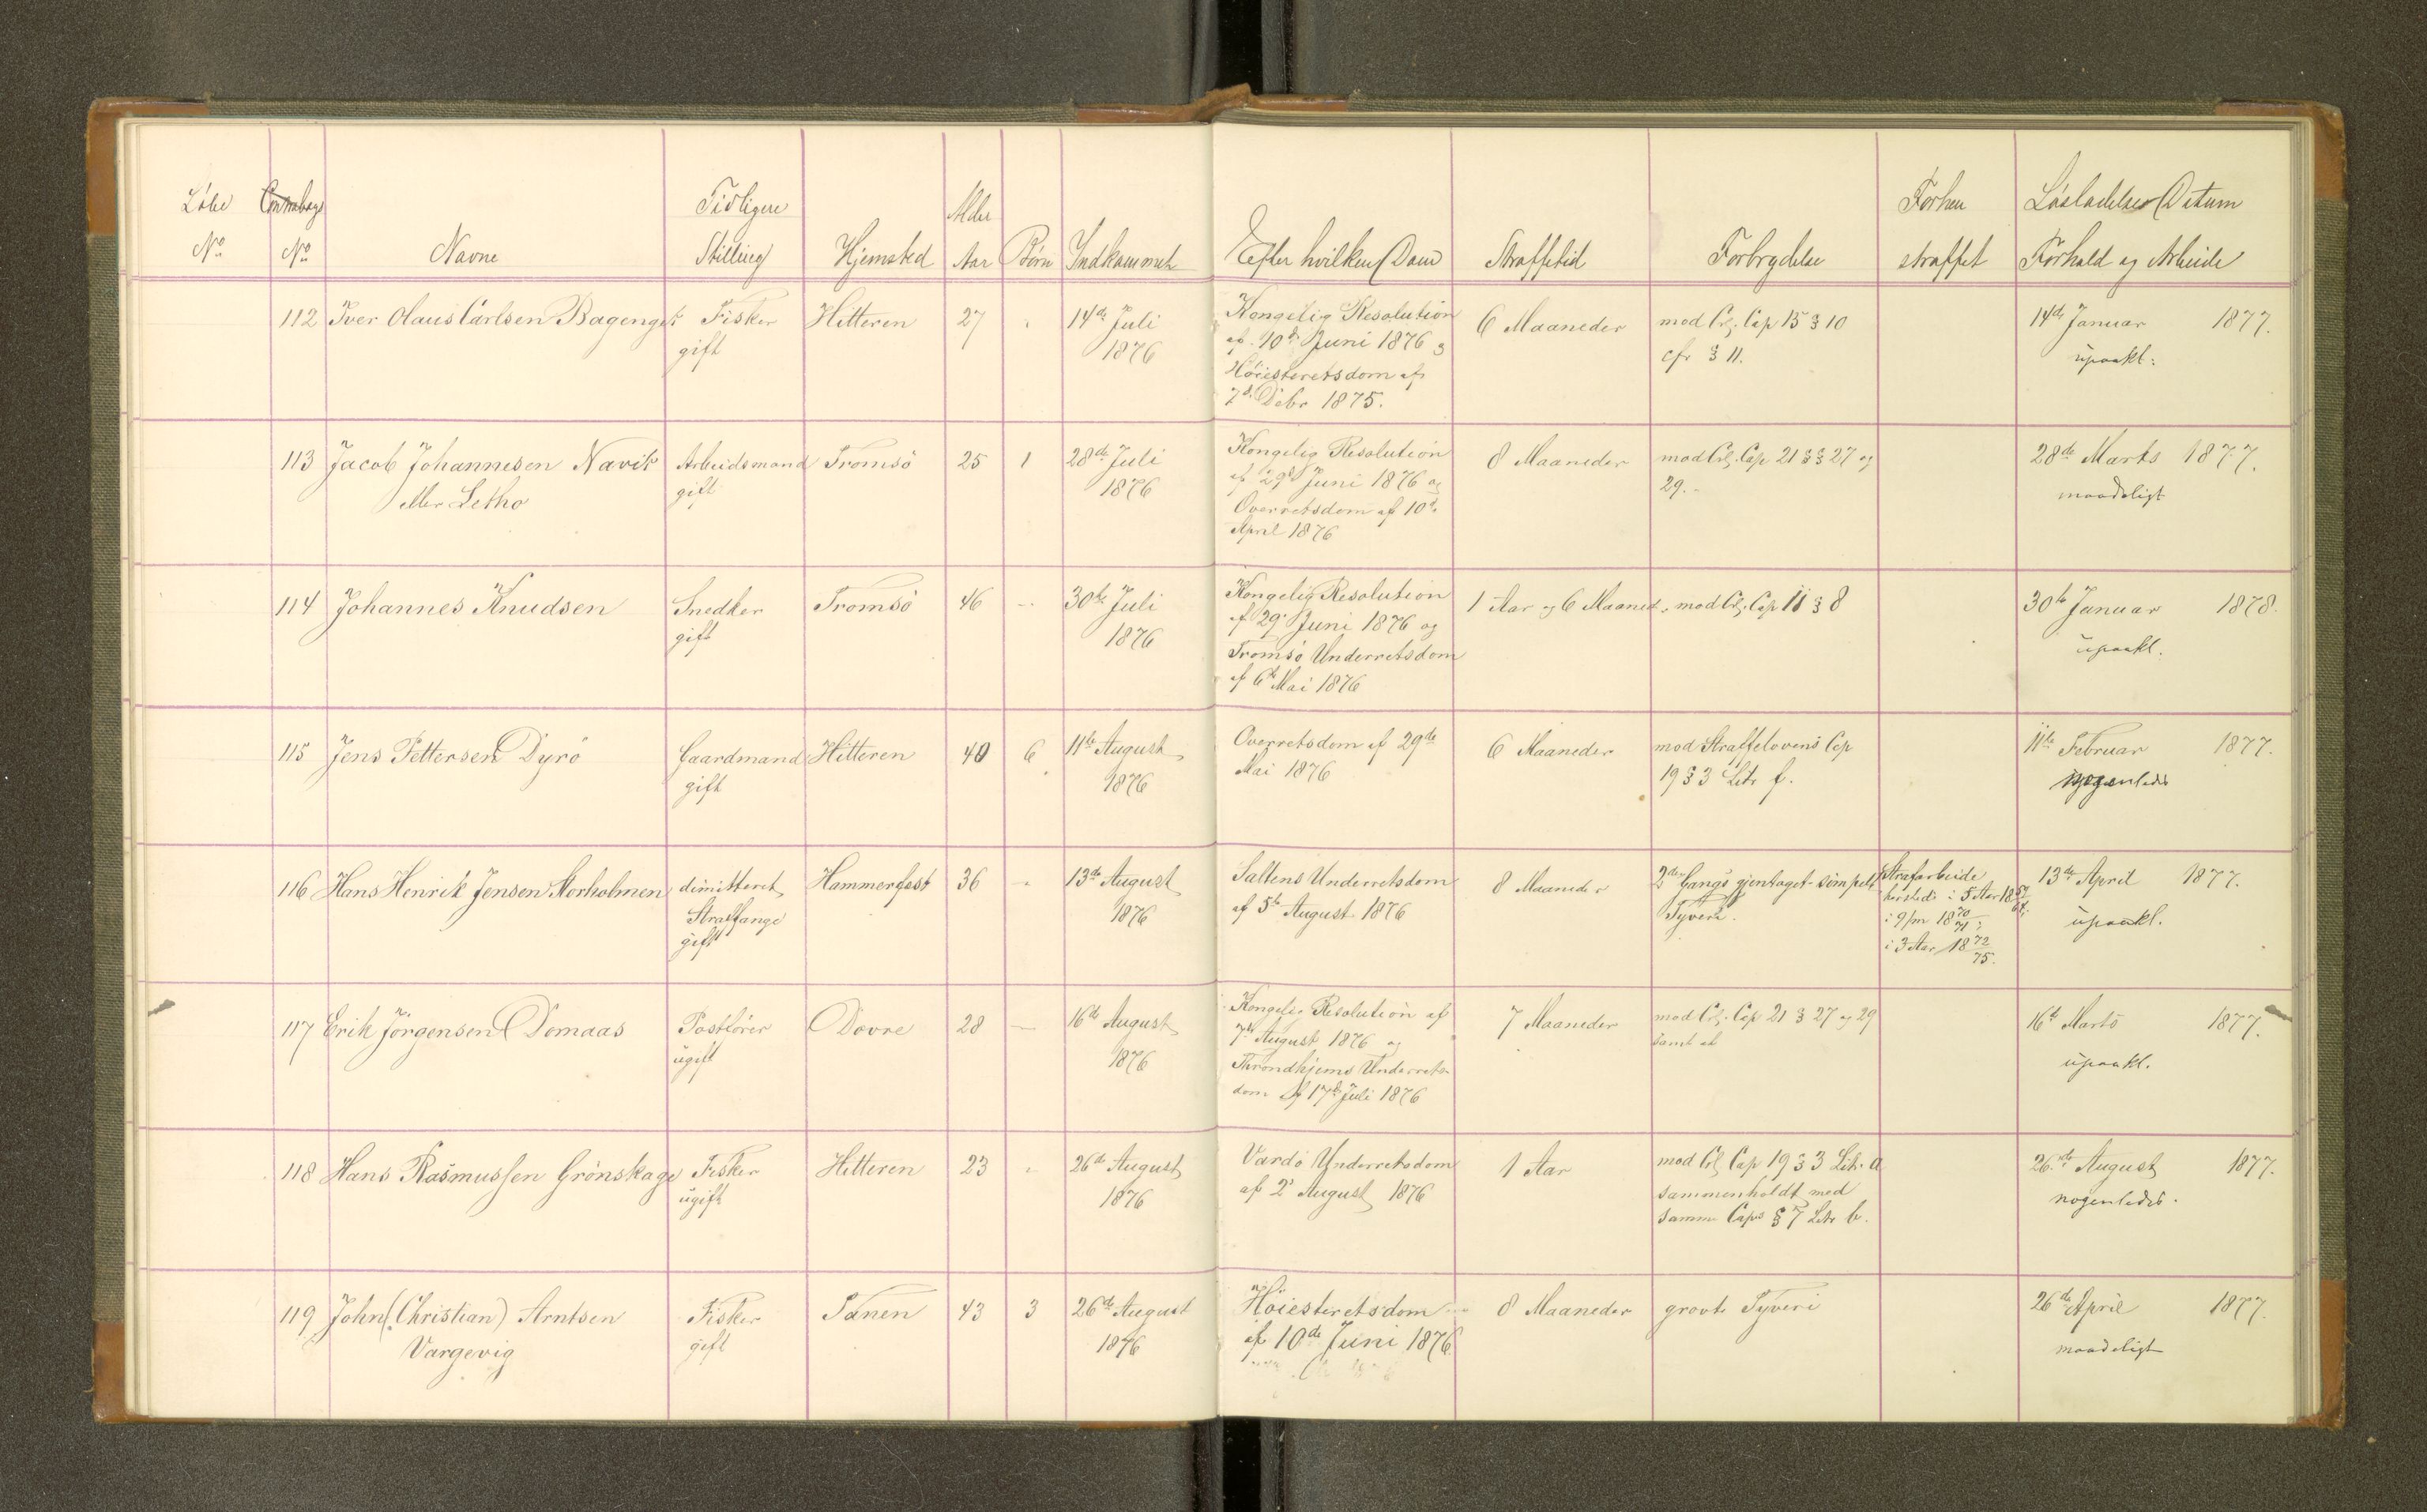 Löbe Tidligere Alder Forhen Lösladelses Datum
No No Navne Stilling Hjemsted Aar Börn Indkommet Efter hvilken Dom Straffetid Forbrydelse straffet Forhold og Arbeide
112 Iver Olaus Carlsen Fisker Hitteren 27 14de Juli Kongelig Resolution 6 Maaneder mod Crl. Cap 15 § 10 14de Januar 1877.
gift 1876 af 10de Juni 1876 og cfr § 11. upaakl:
Höiesteretsdom af
7de Debr 1875.
113 Jacob Johannesen Navik Arbeidsmand Tromsö 25 1 28de Juli Kongelig Resolution 8 Maaneder mod Crl. Cap 21 §§ 27 og 28de Marts 1877.
eller Letho gift 1876 af 29de Juni 1876 og 29. maadeligt
Overretsdom af 10de
April 1876
114 Johannes Knudsen Snedker Tromsö 46 - 30te Juli Kongelig Resolution 1 Aar og 6 Maaned. mod Crl. Cap 11 § 8 30te Januar 1878.
gift 1876 af 29de Juni 1876 og upaakl.
Tromsö Underretsdom
af 6te Mai 1876
115 Jens Pettersen Dyrö Gaardmand Hitteren 40 6 11te August Overretsdom af 29de 6 Maaneder mod Straffelovens Cap 11te Februar 1877.
gift 1876 Mai 1876 19 § 3 Litr f. nogenledes
116 Hans Henrik Jensen Storholmen dimitteret Hammerfest 36 - 13de August Saltens Underretsdom 8 Maaneder 2den Gangs gjentaget simpelt Strafarbeide 13de April 1877.
Straffange 1876 af 5te August 1876 Tyveri. i 5 Aar upaakl.
gift i 9/m 18 70/71;
i 3 Aar 18 72/75.
117 Erik Jörgensen Demaas Postförer Dovre 28 - 16de August Kongelig Resolution af 7 Maaneder mod Crl. Cap 21 § 27 og 29 16de Marts 1877.
ugift 1876 7de August 1876 og samt upaakl.
Throndhjems Underrets-
dom af 17de Juli 1876
118 Hans Rasmussen Grönskage Fisker Hitteren 23 - 26de August Vardö Underretsdom 1 Aar mod Crl Cap 19 § 3 Litr. a 26de August 1877.
ugift 1876 af 2den August 1876 sammenholdt med nogenledes.
samme Caps § 7 Litr b.
119 John (Christian) Arntsen Fisker Tanen 43 3 26de August Höiesteretsdom 8 Maaneder grovt Tyveri 26de April 1877.
Vargevig gift 1876 af 10de Juni 1876 maadeligt